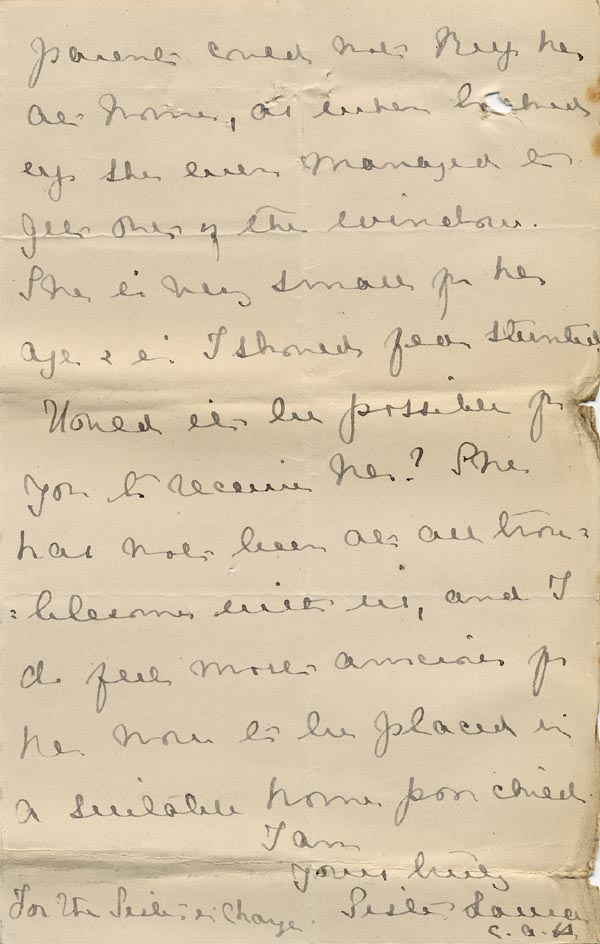 parents could not keep her
at home, as when locked
up she even managed to
get out of the window.
She is very small for her
age & is I should fear stunted
Would it be possible for
you to receive her? She
has not been at all trou=
=blesome with us, and I
do feel most anxious for
her now to be placed in
a suitable home poor child.
I am
yours truly
For the Sister in Charge. Sister Laura